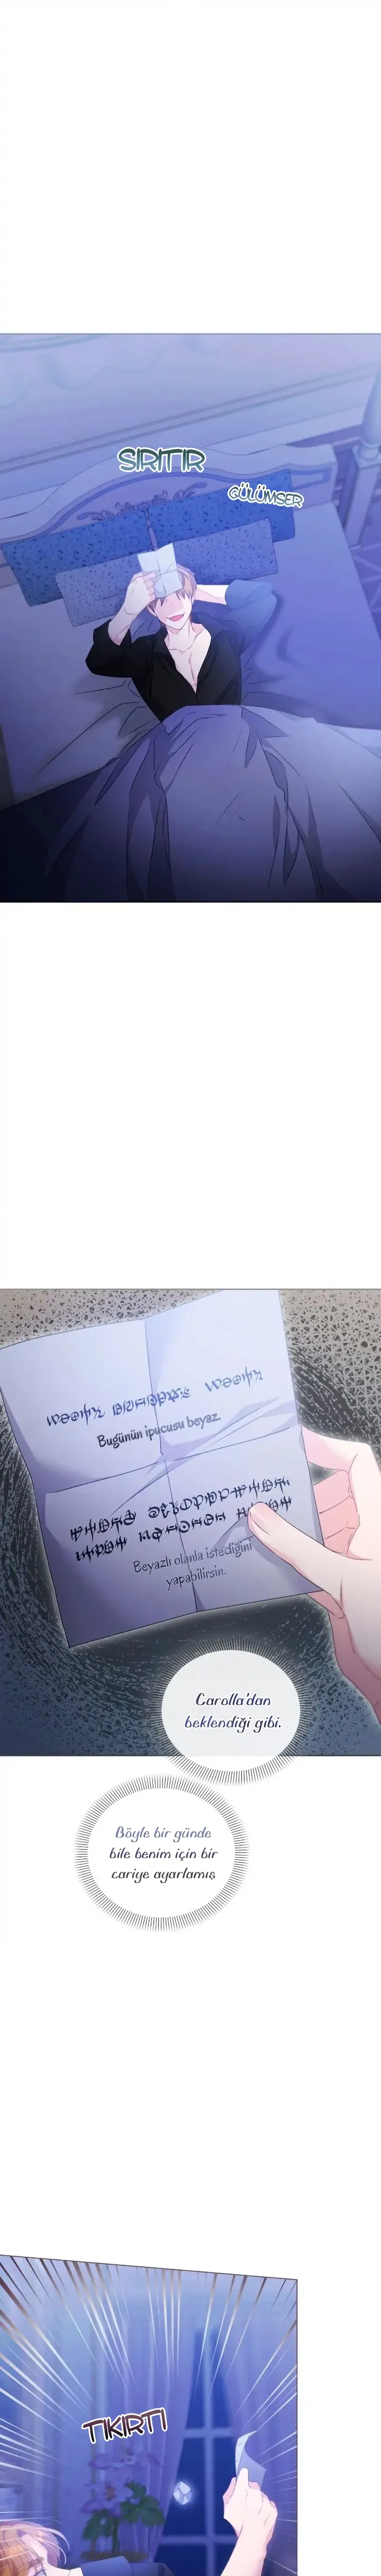 SIRITIR
GÜLÜMSER
Bugünün ipucusu beyaz.
Beyazlı olanla istediğini
yapabilirsin.
Carolla'dan
beklendiği gibi.
Böyle bir günde
bile benim için bir
cariye ayarlamış
TIKIRTI